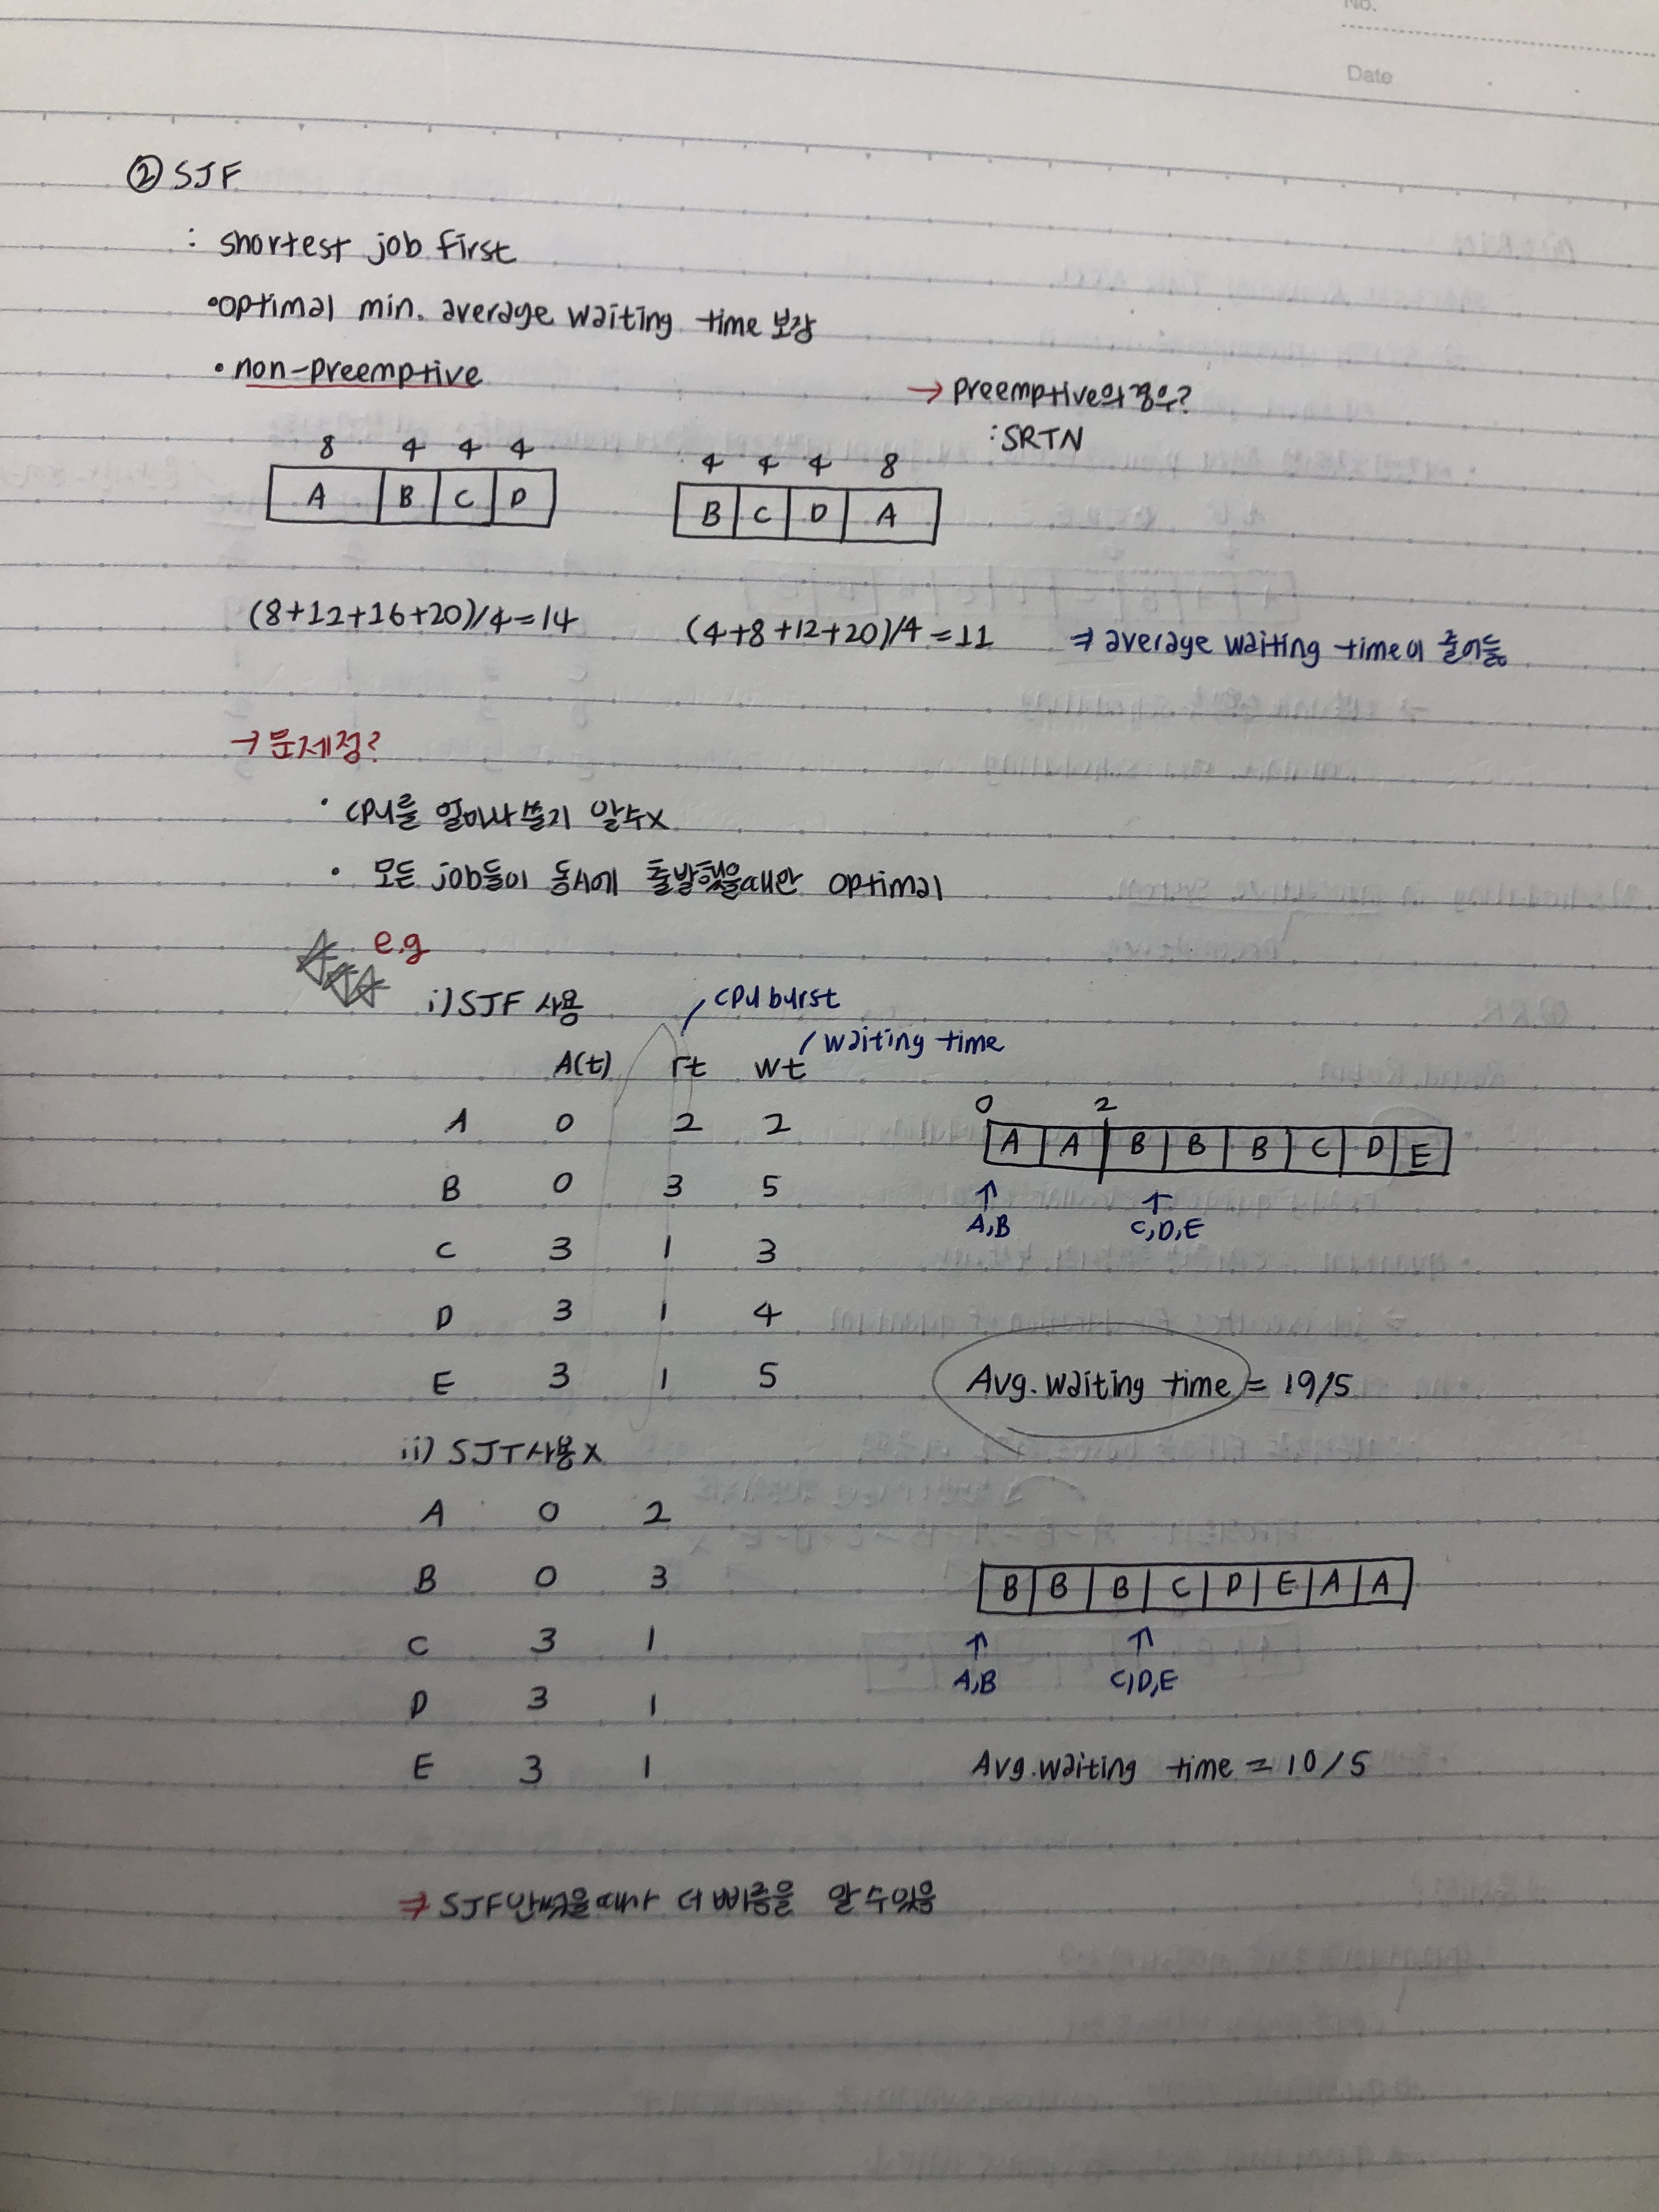 No.
Date
② SJF
: shortest job first
• optimal min. average waiting time 보장
• non-preemptive
→ preemptive의 경우?
: SRTN
8 4 4 4
A B C D
4 4 4 8
B C D A
(8+12+16+20)/4=14
(4+8+12+20)/4=11
⇒ average waiting time이 줄어듦
→ 문제점?
• CPU를 얼마나 쓸지 알수X
• 모든 job들이 동시에 출발했을때만 optimal
e.g
i) SJF 사용
cpu burst
waiting time
A(t) rt wt
A 0 2 2
B 0 3 5
C 3 1 3
D 3 1 4
E 3 1 5
0 2
A A B B B C D E
A,B
C,D,E
Avg. waiting time = 19/5
ii) SJT사용X
A 0 2
B 0 3
C 3 1
D 3 1
E 3 1
B B B C D E A A
A,B
C,D,E
Avg. waiting time = 10/5
⇒ SJF안썼을때가 더 빠름을 알 수 있음